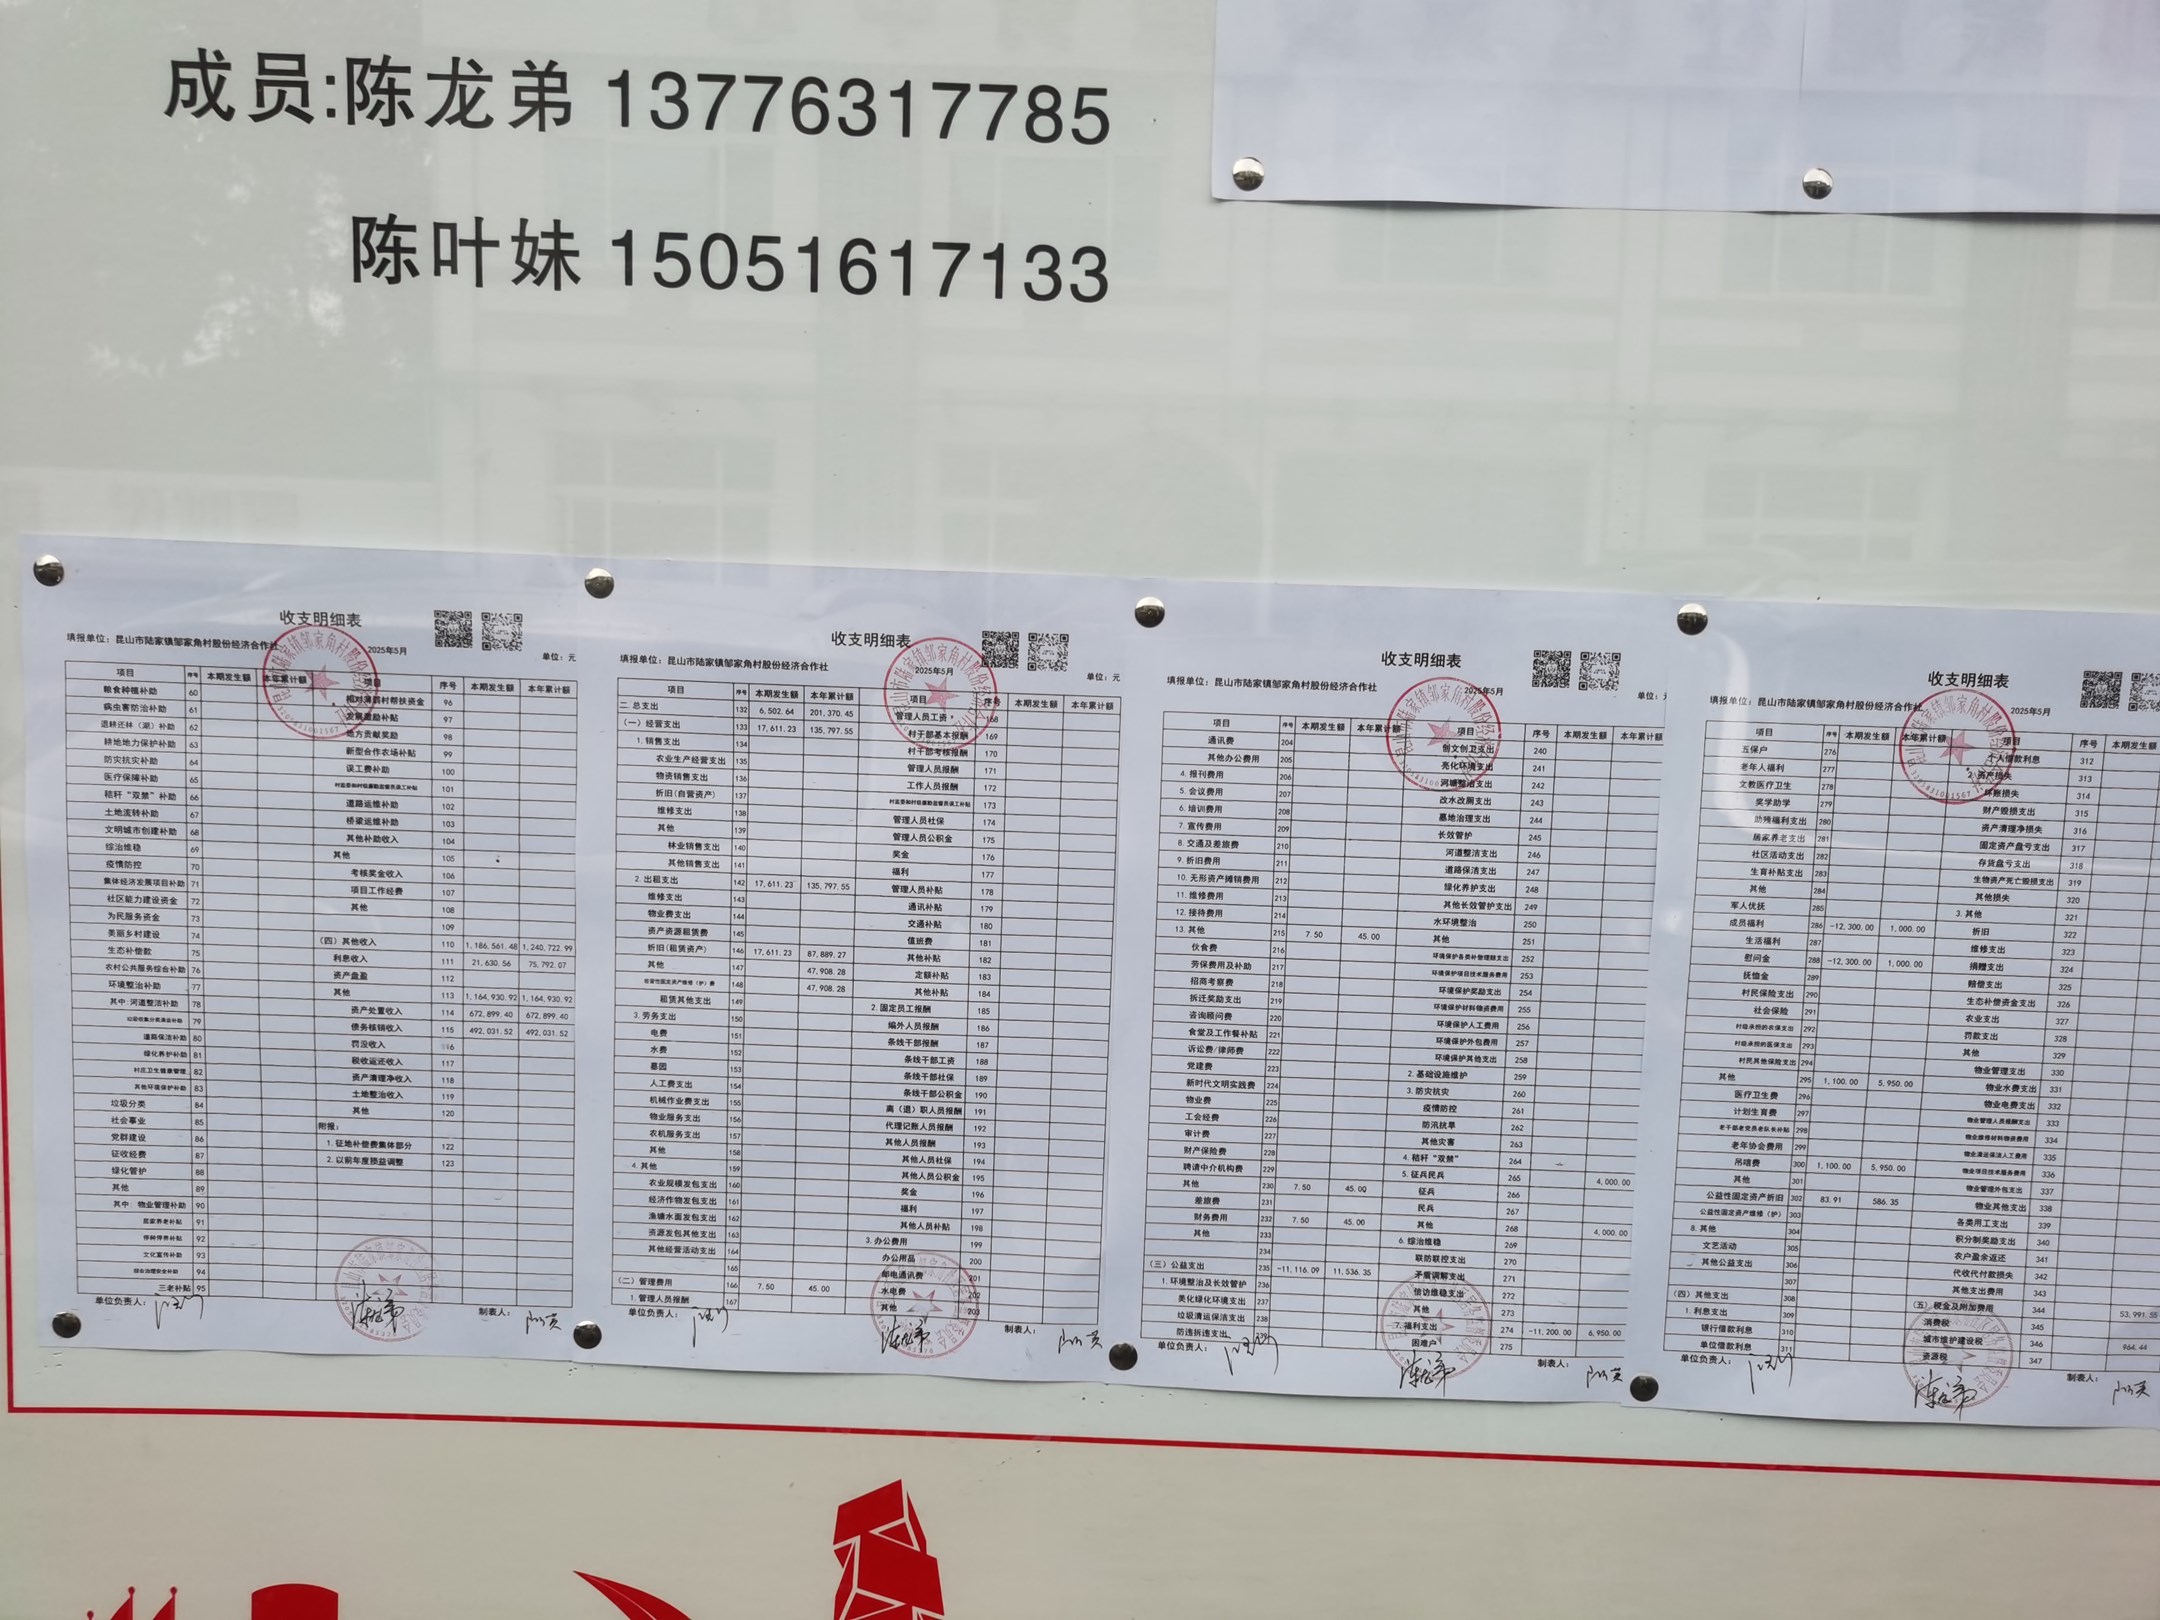 成员:陈龙弟 13776317785
陈叶妹 15051617133
收支明细表
填报单位：昆山市陆家镇邹家角村股份经济合作社
2025年5月
单位：元
项目 序号 本期发生额 本年累计额 项目 序号 本期发生额 本年累计额
粮食种植补助 60 相对薄弱村帮扶资金 96
病虫害防治补助 61 发展激励补贴 97
退耕还林（湖）补助 62 地方贡献奖励 98
耕地地力保护补助 63 新型合作农场补贴 99
防灾抗灾补助 64 误工费补助 100
医疗保障补助 65 101
秸秆“双禁”补助 66 道路运维补助 102
土地流转补助 67 桥梁运维补助 103
文明城市创建补助 68 其他补助收入 104
综治维稳 69 其他 105
疫情防控 70 考核奖金收入 106
集体经济发展项目补助 71 项目工作经费 107
社区能力建设资金 72 其他 108
为民服务资金 73 109
美丽乡村建设 74 （四）其他收入 110 1,186,561.48 1,240,722.99
生态补偿款 75 利息收入 111 21,630.56 75,792.07
农村公共服务综合补助 76 资产盘盈 112
环境整治补助 77 其他 113 1,164,930.92 1,164,930.92
其中:河道整洁补助 78 资产处置收入 114 672,899.40 672,899.40
79 债务核销收入 115 492,031.52 492,031.52
道路保洁补助 80 罚没收入 116
绿化养护补助 81 税收返还收入 117
村庄卫生健康管理 82 资产清理净收入 118
其他环境保护补助 83 土地整治收入 119
垃圾分类 84 其他 120
社会事业 85 附报：
党群建设 86 1.征地补偿费集体部分 122
征收经费 87 2.以前年度损益调整 123
绿化管护 88
其他 89
其中 物业管理补助 90
居家养老补贴 91
92
文化宣传补助 93
综合治理安全补助 94
三老补贴 95
单位负责人： 陈龙弟 制表人：
收支明细表
填报单位：昆山市陆家镇邹家角村股份经济合作社
2025年5月
单位：元
项目 序号 本期发生额 本年累计额 项目 序号 本期发生额 本年累计额
二 总支出 132 6,502.64 201,370.45 管理人员工资 168
（一）经营支出 133 17,611.23 135,797.55 村干部基本报酬 169
1.销售支出 134 村干部考核报酬 170
农业生产经营支出 135 管理人员报酬 171
物资销售支出 136 工作人员报酬 172
折旧(自营资产) 137 173
维修支出 138 管理人员社保 174
其他 139 管理人员公积金 175
林业销售支出 140 奖金 176
其他销售支出 141 福利 177
2.出租支出 142 17,611.23 135,797.55 管理人员补贴 178
维修支出 143 通讯补贴 179
物业费支出 144 交通补贴 180
资产资源租赁费 145 值班费 181
折旧(租赁资产) 146 17,611.23 87,889.27 其他补贴 182
其他 147 47,908.28 定额补贴 183
经营性固定资产维修（护）费 148 47,908.28 其他补贴 184
租赁其他支出 149 2.固定员工报酬 185
3.劳务支出 150 编外人员报酬 186
电费 151 条线干部报酬 187
水费 152 条线干部工资 188
墓园 153 条线干部社保 189
人工费支出 154 条线干部公积金 190
机械作业费支出 155 离（退）职人员报酬 191
物业服务支出 156 代理记账人员报酬 192
农机服务支出 157 其他人员报酬 193
其他 158 其他人员社保 194
4.其他 159 其他人员公积金 195
农业规模发包支出 160 奖金 196
经济作物发包支出 161 福利 197
渔塘水面发包支出 162 其他人员补贴 198
资源发包其他支出 163 3.办公费用 199
其他经营活动支出 164 办公用品 200
165 邮电通讯费 201
（二）管理费用 166 7.50 45.00 水电费 202
1.管理人员报酬 167 其他 203
单位负责人： 陈龙弟 制表人：
收支明细表
填报单位：昆山市陆家镇邹家角村股份经济合作社
2025年5月
单位：元
项目 序号 本期发生额 本年累计额 项目 序号 本期发生额 本年累计额
通讯费 204 创文创卫支出 240
其他办公费用 205 亮化环境支出 241
4.报刊费用 206 河塘整治支出 242
5.会议费用 207 改水改厕支出 243
6.培训费用 208 墓地治理支出 244
7.宣传费用 209 长效管护 245
8.交通及差旅费 210 河道整洁支出 246
9.折旧费用 211 道路保洁支出 247
10.无形资产摊销费用 212 绿化养护支出 248
11.维修费用 213 其他长效管护支出 249
12.接待费用 214 水环境整治 250
13.其他 215 7.50 45.00 其他 251
伙食费 216 252
劳务费用及补助 217 环境保护项目技术服务费用 253
招商考察费 218 环境保护奖励支出 254
拆迁奖励支出 219 环境保护材料物资费用 255
咨询顾问费 220 环境保护人工费用 256
食堂及工作餐补贴 221 环境保护外包费用 257
诉讼费/律师费 222 环境保护其他支出 258
党建费 223 2.基础设施维护 259
新时代文明实践费 224 3.防灾抗灾 260
物业费 225 疫情防控 261
工会经费 226 防汛抗旱 262
审计费 227 其他灾害 263
财产保险费 228 4.秸秆“双禁” 264
聘请中介机构费 229 5.征兵民兵 265 4,000.00
其他 230 7.50 45.00 征兵 266
差旅费 231 民兵 267
财务费用 232 7.50 45.00 其他 268 4,000.00
其他 233 6.综治维稳 269
234 联防联控支出 270
（三）公益支出 235 -11,116.09 11,536.35 矛盾调解支出 271
1.环境整治及长效管护 236 信访维稳支出 272
美化绿化环境支出 237 其他 273
垃圾清运保洁支出 238 7.福利支出 274 -11,200.00 6,950.00
防违拆违支出 239 困难户 275
单位负责人： 陈龙弟 制表人：
收支明细表
填报单位：昆山市陆家镇邹家角村股份经济合作社
2025年5月
项目 序号 本期发生额 本年累计额 项目 序号 本期发生额
五保户 276 个人借款利息 312
老年人福利 277 2.资产损失 313
文教医疗卫生 278 坏账损失 314
奖学助学 279 财产毁损支出 315
助残福利支出 280 资产清理净损失 316
居家养老支出 281 固定资产盘亏支出 317
社区活动支出 282 存货盘亏支出 318
生育补贴支出 283 生物资产死亡毁损支出 319
其他 284 其他损失 320
军人优抚 285 3.其他 321
成员福利 286 -12,300.00 1,000.00 折旧 322
生活福利 287 维修支出 323
慰问金 288 -12,300.00 1,000.00 捐赠支出 324
抚恤金 289 赔偿支出 325
村民保险支出 290 生态补偿资金支出 326
社会保险 291 农业支出 327
村级承担的农保支出 292 罚款支出 328
村级承担的医保支出 293 其他 329
村民其他保险支出 294 物业管理支出 330
其他 295 1,100.00 5,950.00 物业水费支出 331
医疗卫生费 296 物业电费支出 332
计划生育费 297 物业管理人员报酬支出 333
老干部老党员老队长补贴 298 物业维修材料物资费用 334
老年协会费用 299 物业清运保洁人工费用 335
吊唁费 300 1,100.00 5,950.00 物业项目技术服务费用 336
其他 301 物业管理外包支出 337
公益性固定资产折旧 302 83.91 586.35 物业其他支出 338
公益性固定资产维修（护） 303 各类用工支出 339
8.其他 304 积分制奖励支出 340
文艺活动 305 农户盈余返还 341
其他公益支出 306 代收代付款损失 342
307 其他支出费用 343
（四）其他支出 308 （五）税金及附加费用 344 53,991.55
1.利息支出 309 消费税 345
银行借款利息 310 城市维护建设税 346 964.44
单位借款利息 311 资源税 347
单位负责人： 陈龙弟 制表人：